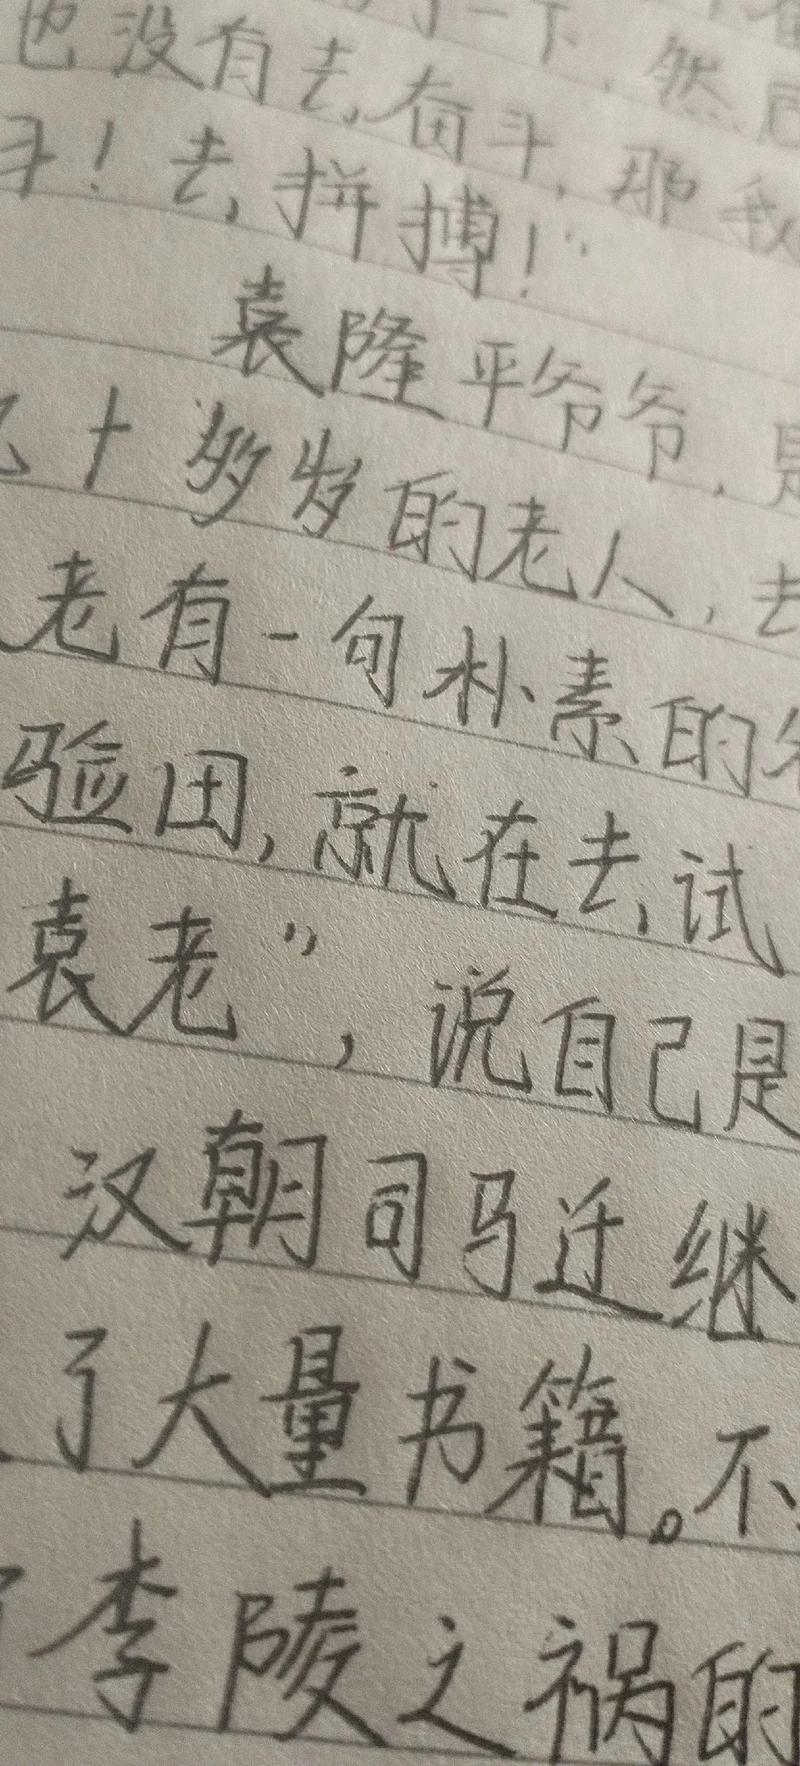 一下,然后
也没有去奋斗,那我
斗!去拼搏!”
袁隆平爷爷,是
十多岁的老人,去
老有一句朴素的
验田,就在去试
袁老”,说自己是
汉朝司马迁继
了大量书籍。不
李陵之祸的